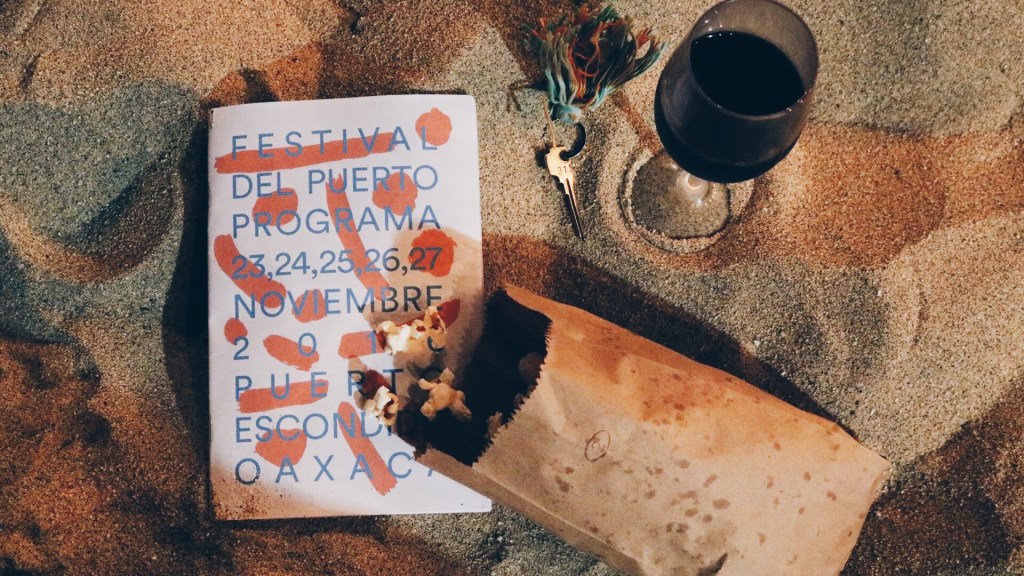 FESTIVAL
DEL PUERTO
PROGRAMA
23,24,25,26,27
NOVIEMBRE
PUERTO
OAXACA